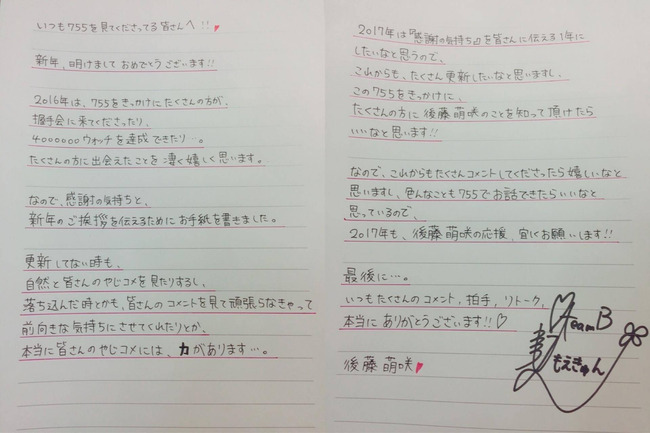 いつも755を見てくださってる皆さんへ!!♥
新年、明けまして おめでとうございます!!
2016年は、755をきっかけにたくさんの方が、
握手会に来てくださったり、
4000000ウォッチを達成できたり…。
たくさんの方に出会えたことを凄く嬉しく思います。
なので、感謝の気持ちと、
新年のご挨拶を伝えるためにお手紙を書きました。
更新してない時も、
自然と皆さんのやじコメを見たりするし、
落ち込んだ時とかも、皆さんのコメントを見て頑張らなきゃって
前向きな気持ちにさせてくれたりとか、
本当に皆さんのやじコメには、力があります…。
2017年は『感謝の気持ち』を皆さんに伝える1年に
したいなと思うので、
これからも、たくさん更新したいなと思いますし、
この755をきっかけに、
たくさんの方に後藤萌咲のことを知って頂けたら
いいなと思います!!
なので、これからもたくさんコメントしてくださったら嬉しいなと
思いますし、色んなことも755でお話できたらいいなと
思っているので、
2017年も、後藤萌咲の応援、宜しくお願いします!!
最後に…。
いつもたくさんのコメント、拍手、リトーク、
本当にありがとうございます!!♡
後藤萌咲♥
TeamB
もえきゅん